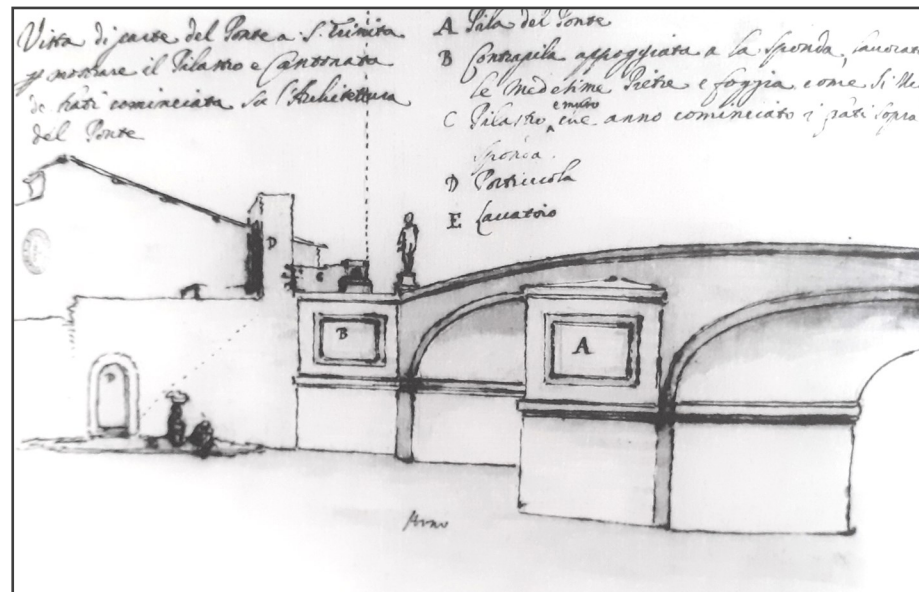 Vista di parte del Ponte a S. Trinita
p mostrare il Pilastro e Cantonata
de frati cominciata su l'Architettura
del Ponte
A Pila del Ponte
B Contrapila appoggiata a la sponda, lavorat
le medesime Pietre e foggia come si
C Pilastro, e muro che anno cominciato i frati sopra
sponda.
D Porticciola
E Lavatoio
D
C
B
A
Arno